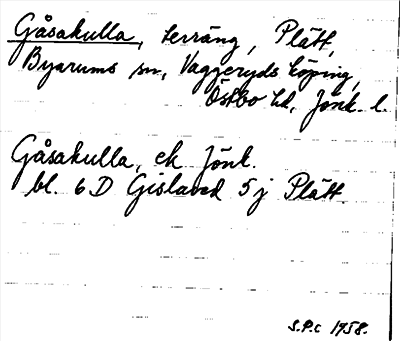 Gåsakulla, terräng, Plätt,
Byarums sn, Vaggeryds köping,
Östbo hd, Jönk. l.
Gåsakulla, ek Jönk.
bl. 6 D Gislaved 5 j Plätt.
S.P.c 1958.